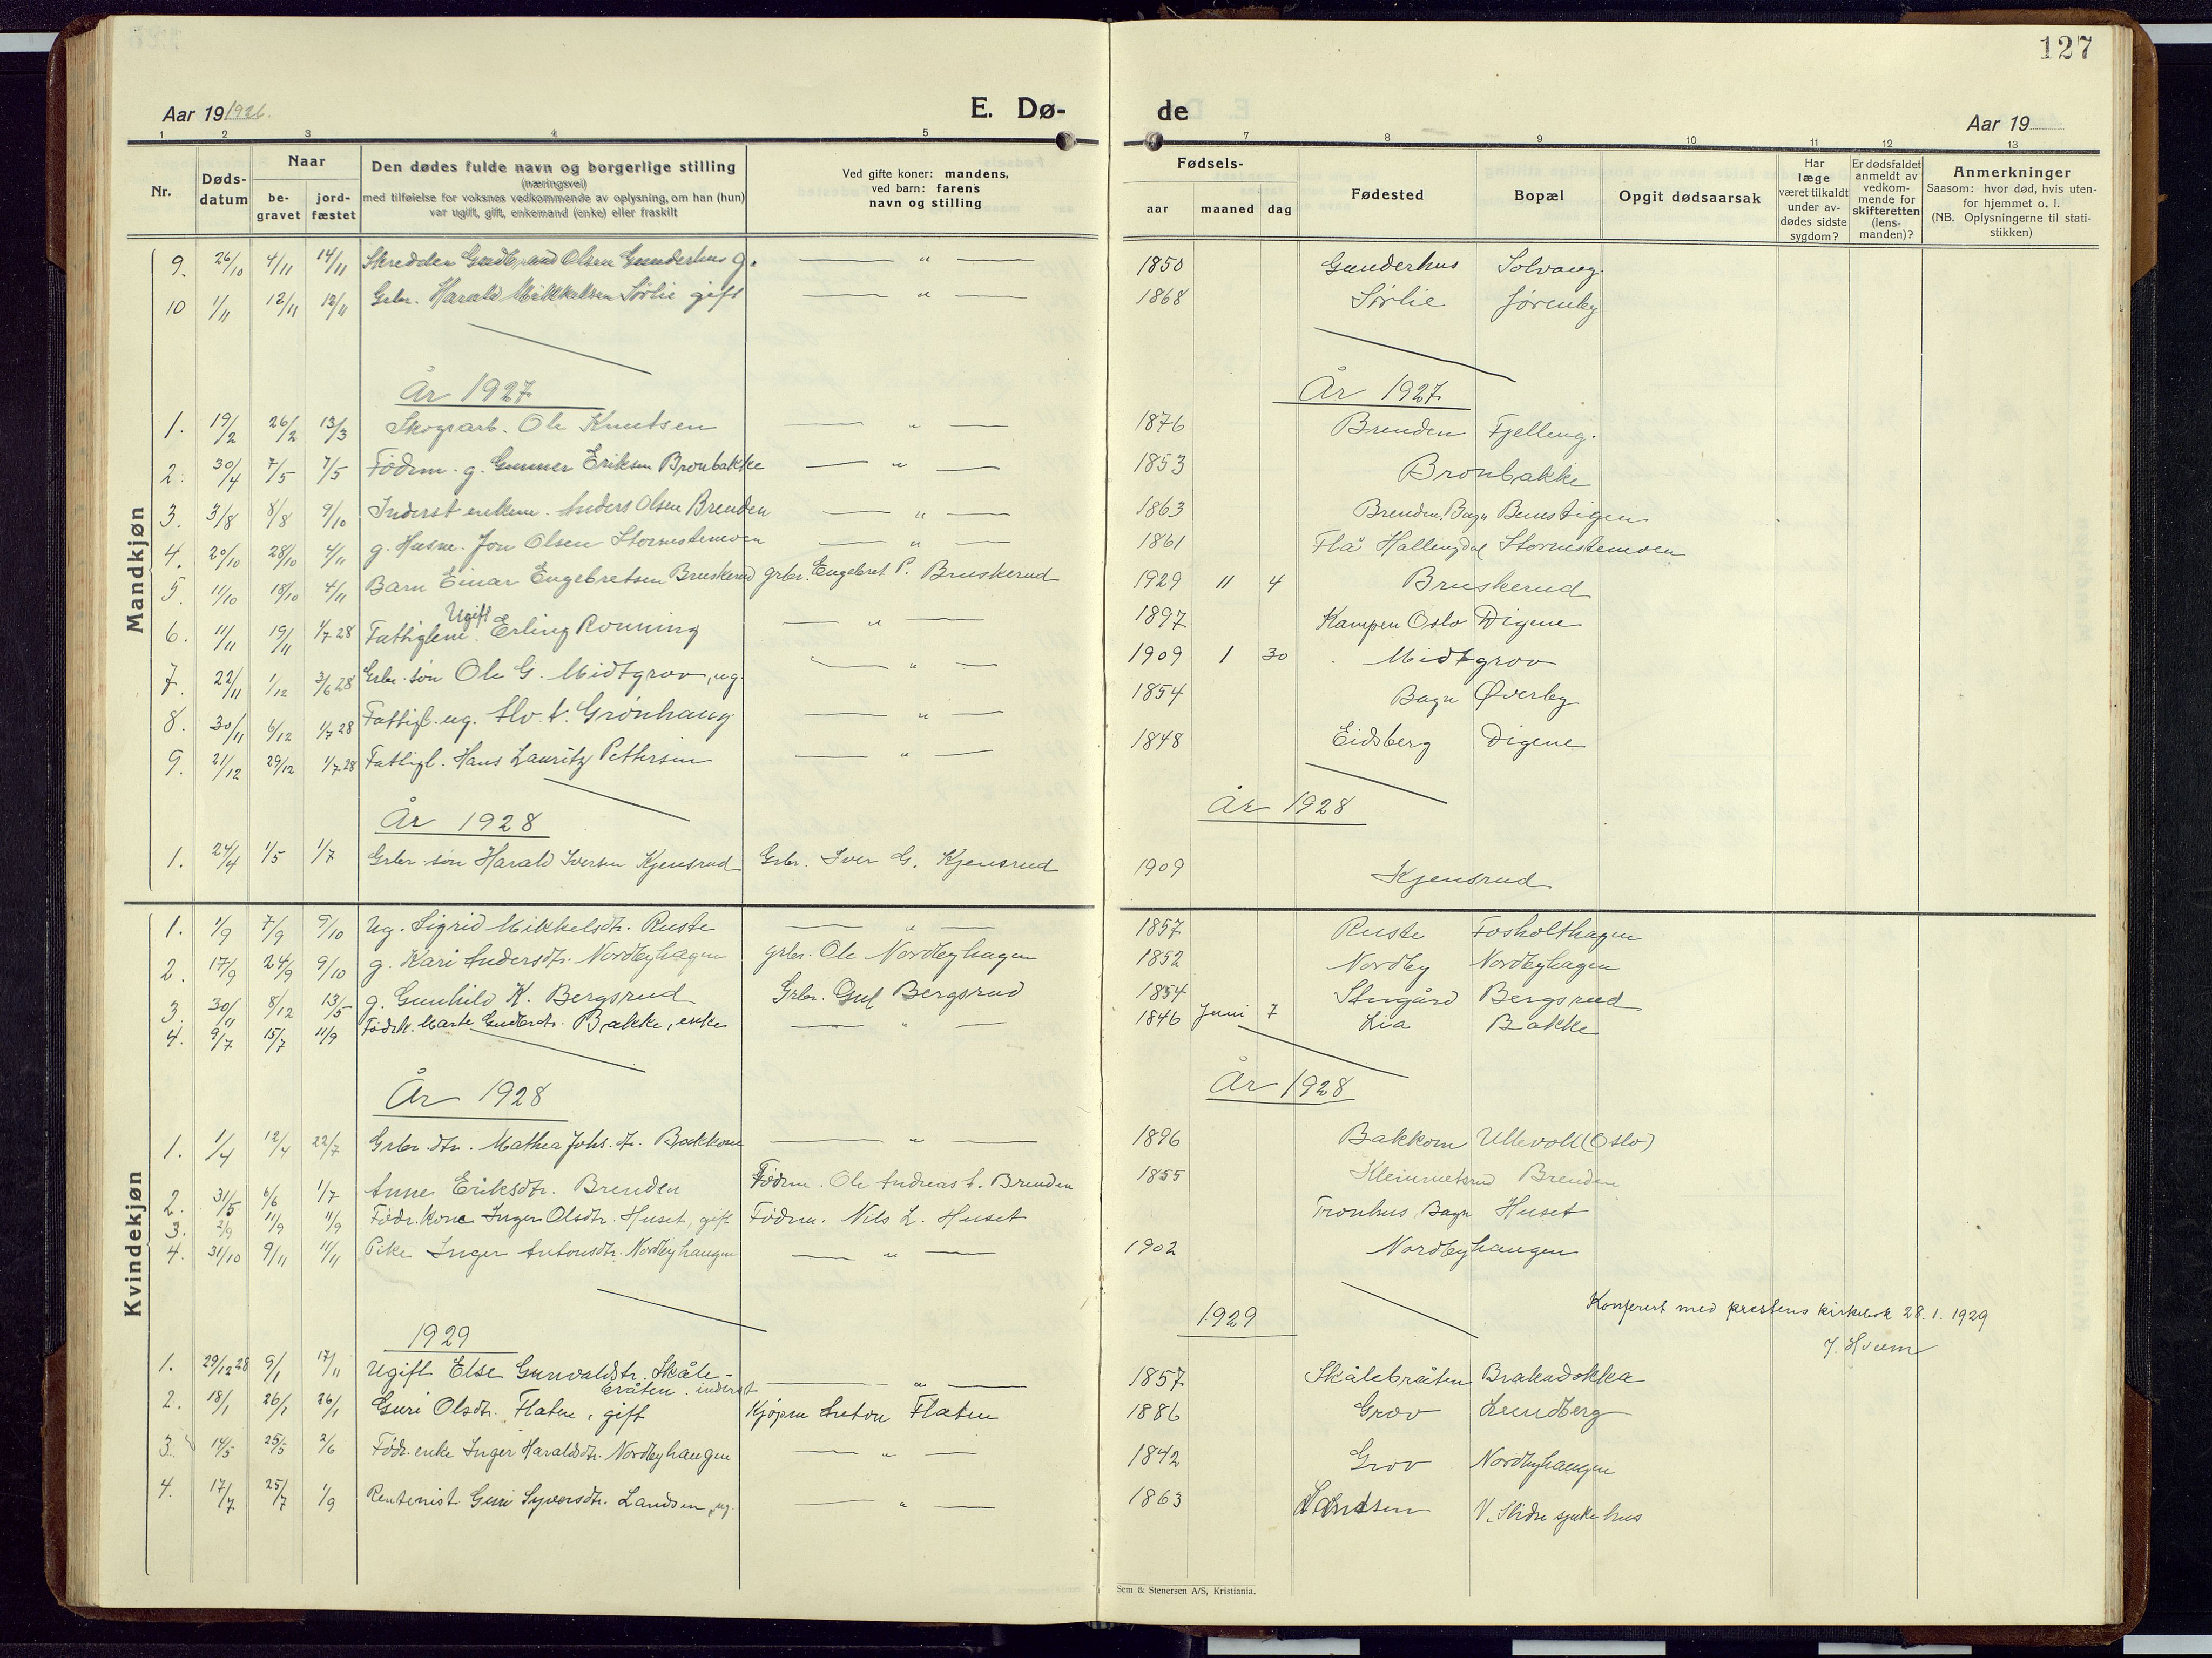 127
Aar 19 1926.
E. Dø-
de
Aar 19
1 2 3 4 5
7 8 9 10 11 12 13
Nr.
Døds-
datum
Naar
be-
gravet
jord-
fæstet
Den dødes fulde navn og borgerlige stilling
(næringsvei)
med tilføielse for voksnes vedkommende av oplysning, om han (hun)
var ugift, gift, enkemand (enke) eller fraskilt
Ved gifte koner: mandens,
ved barn: farens
navn og stilling
Fødsels-
aar maaned dag
Fødested
Bopæl
Opgit dødsaarsak
Har
læge
været tilkaldt
under av-
dødes sidste
sygdom?
Er dødsfaldet
anmeldt av
vedkom-
mende for
skifteretten
(lens-
manden)?
Anmerkninger
Saasom: hvor død, hvis uten-
for hjemmet o. l.
(NB. Oplysningerne til stati-
stikken)
Mandkjøn
9. 26/10 4/11 14/11 Skredder Gudbrand Olsen Gunderhus g. — " — 1850 Gunderhus Solvang.
10 1/11 12/11 12/11 Grbr. Harald Mikkelsen Sørlie gift — " — 1868 Sørlie Jørenby
År 1927 År 1927
1. 19/2 26/2 13/3 Skogsarb. Ole Knutsen — " — 1876 Brenden Fjelleng.
2. 30/4 7/5 7/5 Födrm. g. Gunner Eriksen Bronbakke — " — 1853 Bronbakke
3. 3/8 8/8 9/10 Inderst enkem. Anders Olsen Brenden — " — 1863 Brenden, Bagn Benstigen
4. 20/10 28/10 4/11 g. Husm. Jon Olsen Stornstenmoen — " — 1861 Flå Hallingdal Stornstenmoen
5. 11/10 18/10 4/11 Barn Einar Engebretsen Bruskerud grbr. Engebret P. Bruskerud 1929 11 4 Bruskerud
Ugift
6. 11/11 19/11 1/7 28 Fattiglem. Erling Rønning — " — 1897 Kampen Oslo Digene
7. 22/11 1/12 3/6 28 Grbr. søn Ole G. Midtgrov, ug. — " — 1909 1 30 Midtgrov
8. 30/11 6/12 1/7 28 Fattigl. ug. Grönhaug — " — 1854 Bagn Øverby
9. 21/12 29/12 1/7 28 Fattigl. Hans Lauritz Pettersen — " — 1848 Eidsberg Digene
År 1928 År 1928
1. 24/4 1/5 1/7 Grbr. søn Harald Iversen Kjensrud Grbr. Iver G. Kjensrud 1909 Kjensrud
Kvindekjøn
1. 1/9 7/9 9/10 Ug. Sigrid Mikkelsdtr. Ruste — " — 1857 Ruste Fosholthagen
2. 17/9 24/9 9/10 g. Kari Andersdtr. Nordbyhagen grbr. Ole Nordbyhagen 1852 Nordby Nordbyhagen
3. 30/11 8/12 13/5 g. Gunhild K. Bergsrud Grbr. Gul Bergsrud 1854 Stengård Bergsrud
4. 9/7 15/7 11/9 Födrk. Marte Gudbrdtr. Bakke, enke — " — 1846 Juni 7 Lia Bakke
År 1928 År 1928
1. 1/4 12/4 22/7 Grbr. dtr. Mathea Johs. dtr. Bakkom — " — 1896 Bakkom Ullevoll (Oslo)
2. 31/5 6/6 1/7 Anne Eriksdtr. Brenden Födrm. Ole Andreas A. Brenden 1855 Kleimmetsrud Brenden
3. 2/9 11/9 11/9 Födr. kone Inger Olsdtr. Huset, gift Födrm. Nils L. Huset Tronhus, Bagn Huset
4. 31/10 9/11 11/11 Pike Inger Antonsdtr. Nordbyhaugen — " — 1902 Nordbyhaugen
Konferert med prestens kirkebok 28.1.1929
J. Hvem
1929 1929
1. 29/12 28 9/1 17/11 Ugift Else Gunvaldsdtr. Skåle- — " — 1857 Skålebråten Brakadokka
bråten. inderst
2. 18/1 26/1 26/1 Guri Olsdtr. Flaten, gift Kjøpm Anton Flaten 1886 Grov Lundberg
3. 14/5 25/5 2/6 Födr. enke Inger Haraldsdtr. Nordbyhaugen — " — 1842 Grov Nordbyhaugen
4. 17/7 25/7 1/9 Rentenist Guri Syversdtr. Landsen, ug. — " — 1863 Landsen V. Slidre sjukehus
Sem & Stenersen A/S, Kristiania.